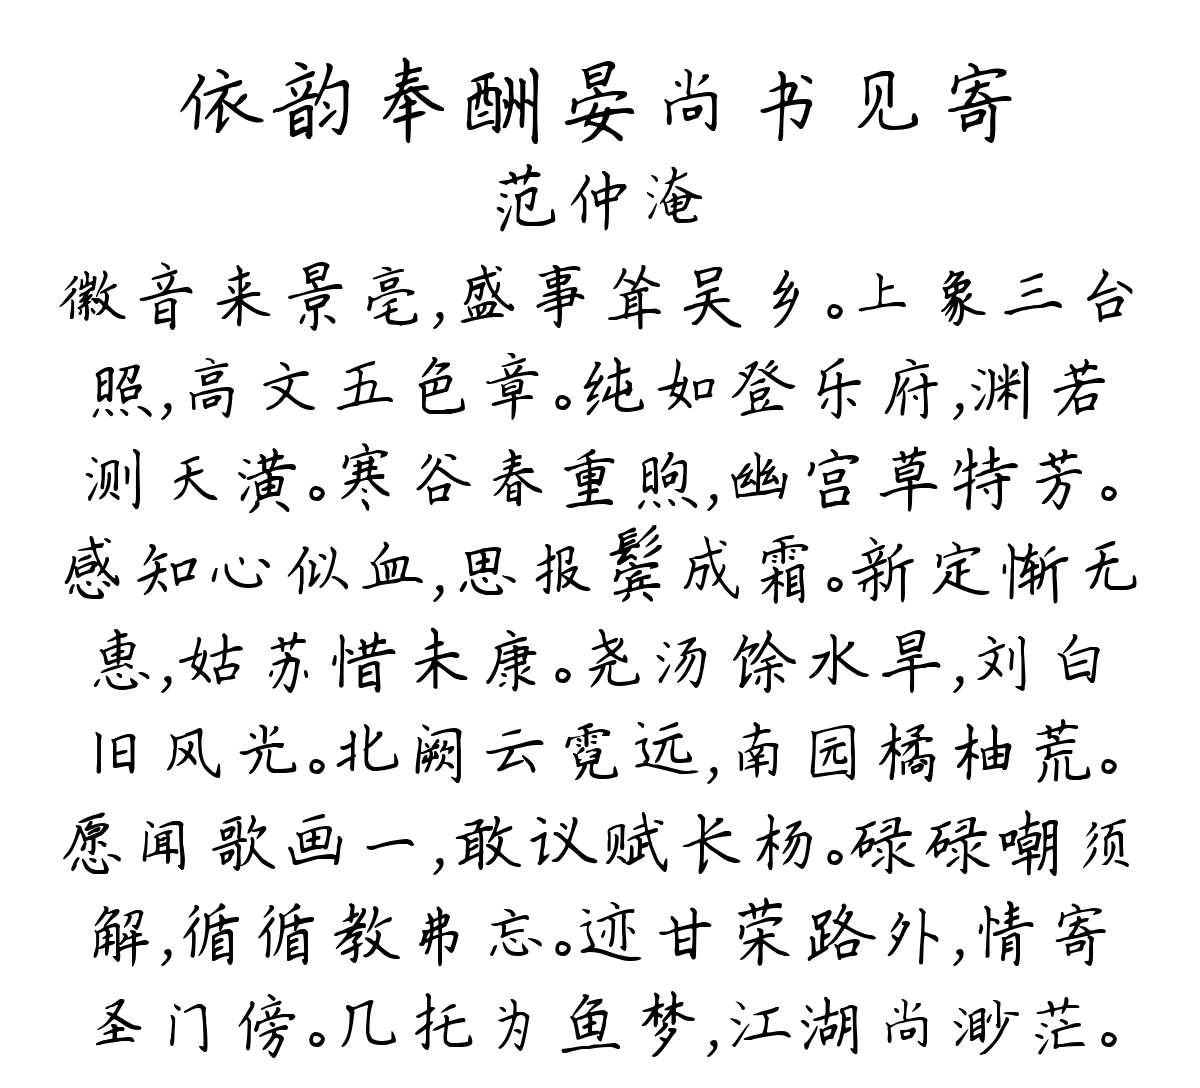 依韵奉酬晏尚书见寄
范仲淹
徽音来景亳,盛事耸吴乡。上象三台
照,高文五色章。纯如登乐府,渊若
测天潢。寒谷春重煦,幽宫草特芳。
感知心似血,思报鬓成霜。新定惭无
惠,姑苏惜未康。尧汤馀水旱,刘白
旧风光。北阙云霓远,南园橘柚荒。
愿闻歌画一,敢议赋长杨。碌碌嘲须
解,循循教弗忘。迹甘荣路外,情寄
圣门傍。几托为鱼梦,江湖尚渺茫。